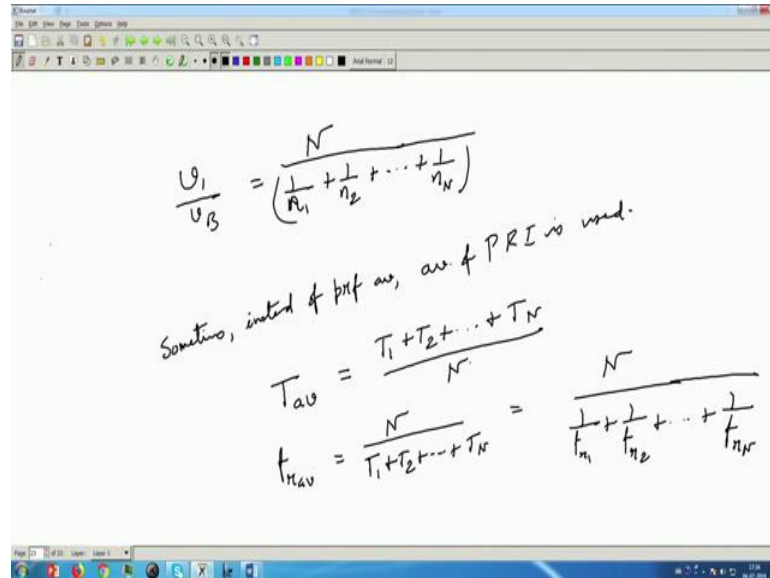 File Edit View Page Tools Options Help
Arial Normal 12
υ₁/υ_B = N/(1/n₁ + 1/n₂ + ··· + 1/n_N)
Sometims, insted of prf av, av. of PRI is used.
T_av = (T₁+T₂+···+T_N)/N
f_rav = N/(T₁+T₂+···+T_N) = N/(1/f_r₁ + 1/f_r₂ + ··· + 1/f_r_N)
Page 23 of 23 Layer: Layer 1
17:34